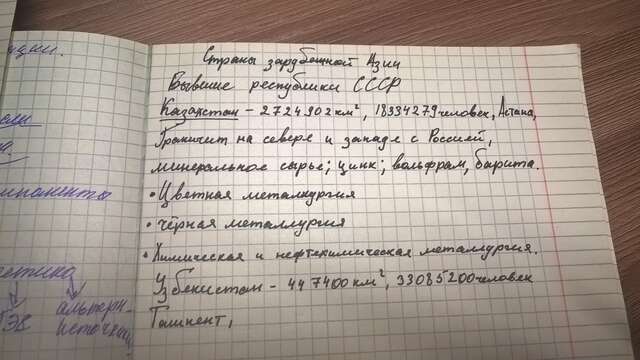 Страны зарубежной Азии
Бывшие республики СССР
Казахстан - 2724902 км², 18334279 человек, Астана,
Граничит на севере и западе с Россией,
минеральное сырье; цинк; вольфрам, барита.
• Цветная металлургия
• чёрная металлургия
• Химическая и нефтехимическая металлургия.
Узбекистан - 447400 км², 33085200 человек
Ташкент,
альтерн-
источники